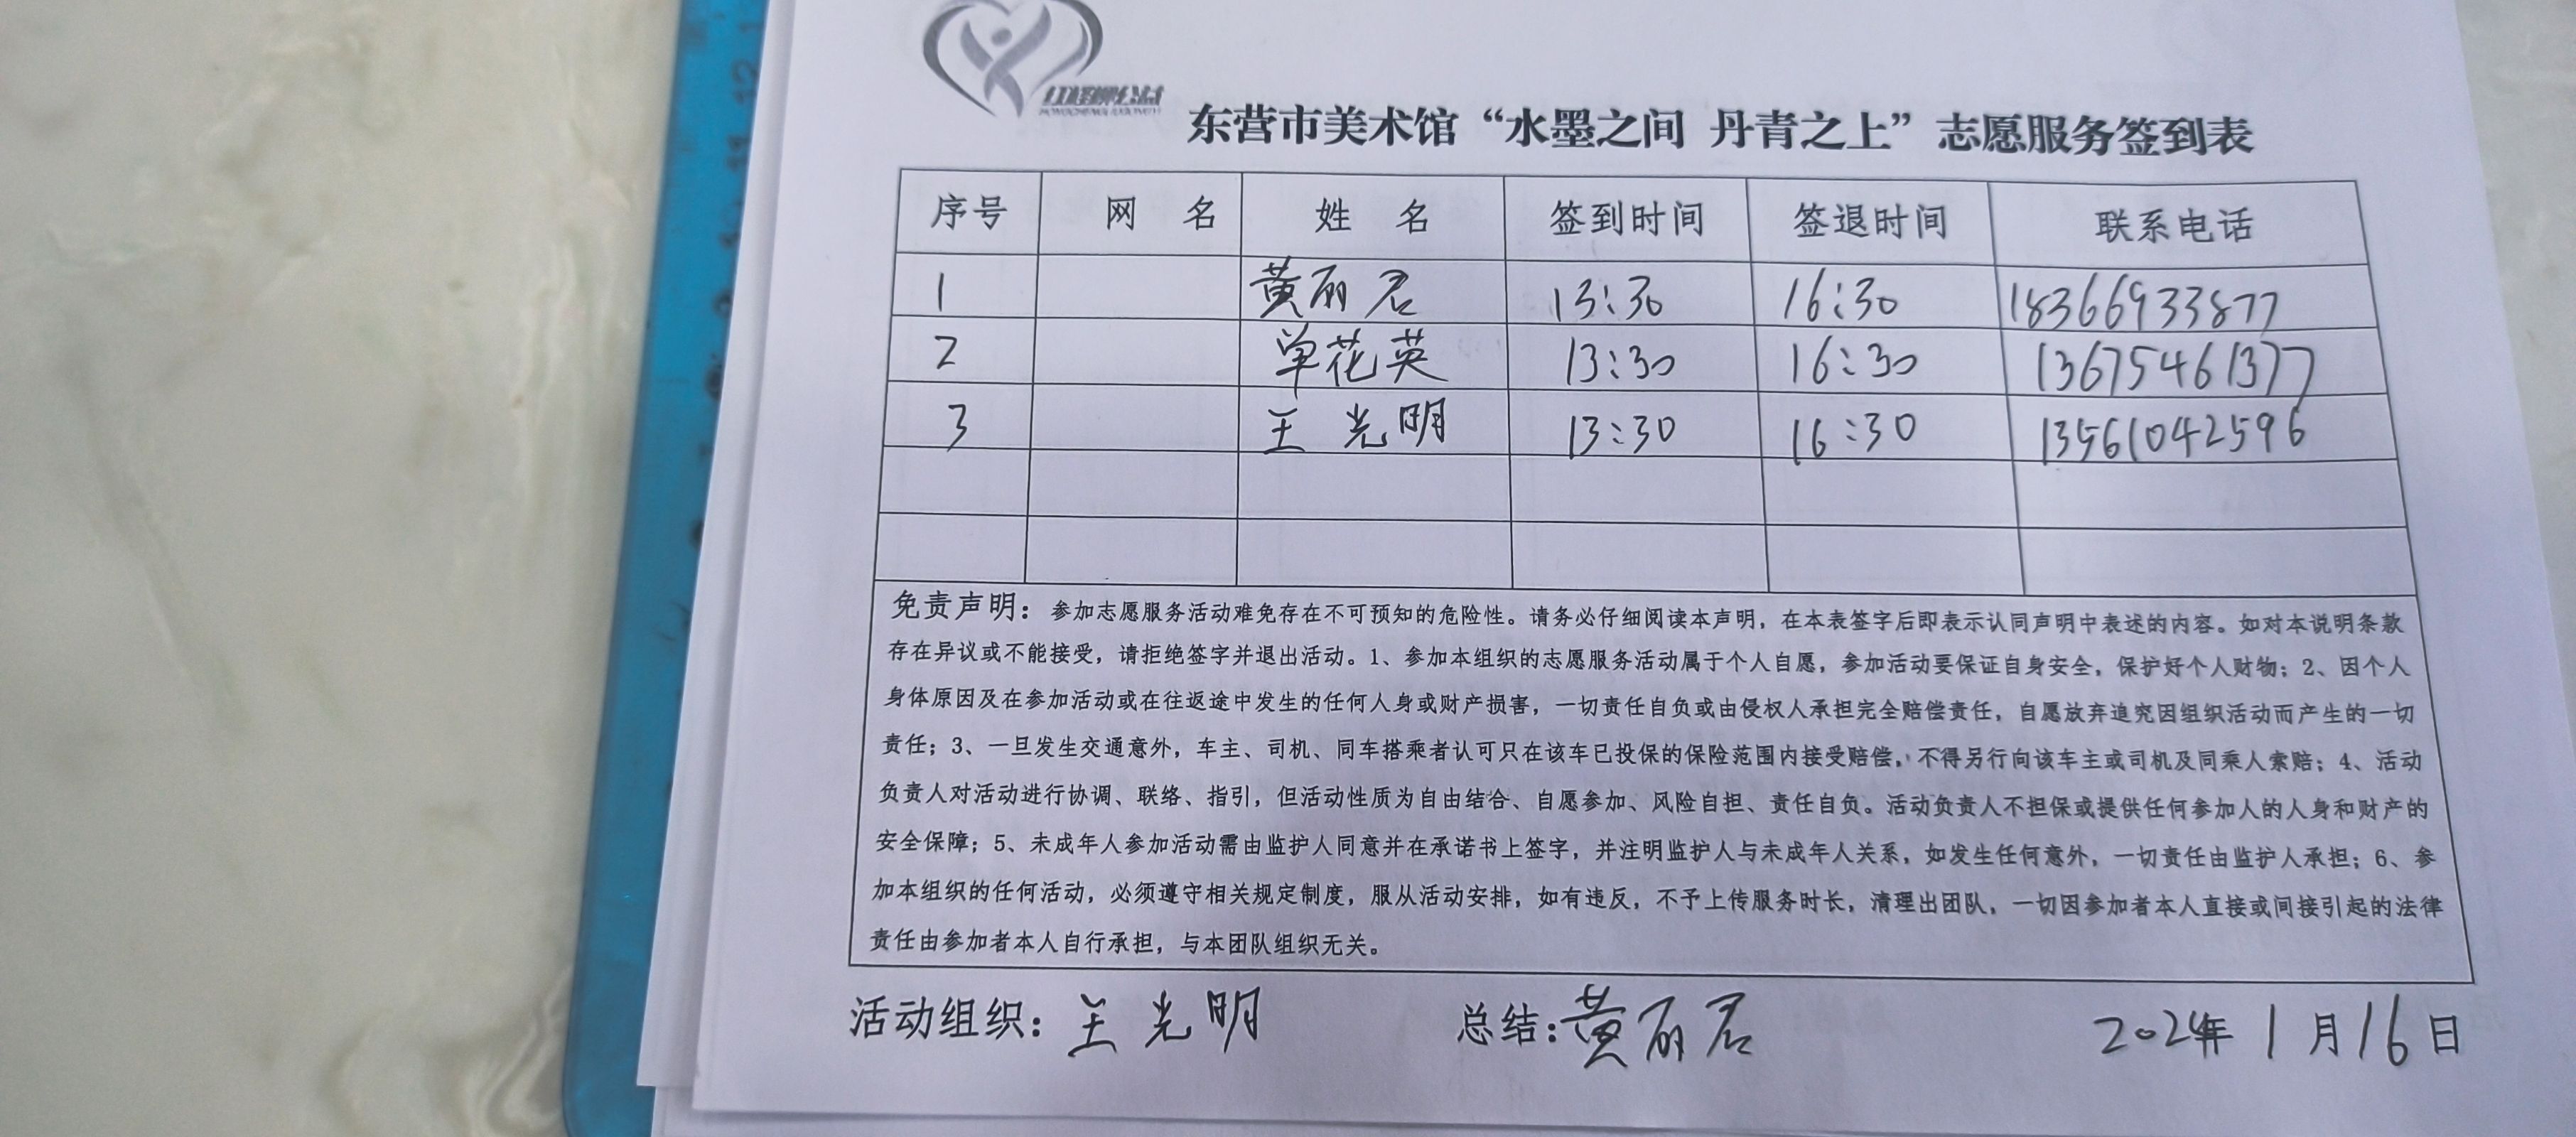 红柽柳公益
东营市美术馆“水墨之间 丹青之上”志愿服务签到表
序号 网 名 姓 名 签到时间 签退时间 联系电话
1 黄丽君 13:30 16:30 18366933877
2 单花英 13:30 16:30 13675461377
3 王光明 13:30 16:30 13561042596
免责声明：参加志愿服务活动难免存在不可预知的危险性。请务必仔细阅读本声明，在本表签字后即表示认同声明中表述的内容。如对本说明条款
存在异议或不能接受，请拒绝签字并退出活动。1、参加本组织的志愿服务活动属于个人自愿，参加活动要保证自身安全，保护好个人财物；2、因个人
身体原因及在参加活动或在往返途中发生的任何人身或财产损害，一切责任自负或由侵权人承担完全赔偿责任，自愿放弃追究因组织活动而产生的一切
责任；3、一旦发生交通意外，车主、司机、同车搭乘者认可只在该车已投保的保险范围内接受赔偿，不得另行向该车主或司机及同乘人索赔；4、活动
负责人对活动进行协调、联络、指引，但活动性质为自由结合、自愿参加、风险自担、责任自负。活动负责人不担保或提供任何参加人的人身和财产的
安全保障；5、未成年人参加活动需由监护人同意并在承诺书上签字，并注明监护人与未成年人关系，如发生任何意外，一切责任由监护人承担；6、参
加本组织的任何活动，必须遵守相关规定制度，服从活动安排，如有违反，不予上传服务时长，清理出团队，一切因参加者本人直接或间接引起的法律
责任由参加者本人自行承担，与本团队组织无关。
活动组织：王光明 总结：黄丽君 2024年1月16日